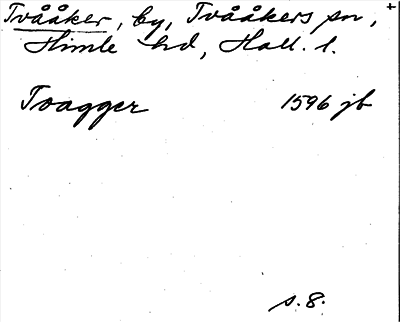 +
Tvååker, by, Tvååkers sn,
Himle hd, Hall. l.
Tvagger 1596 jb
s. 8.